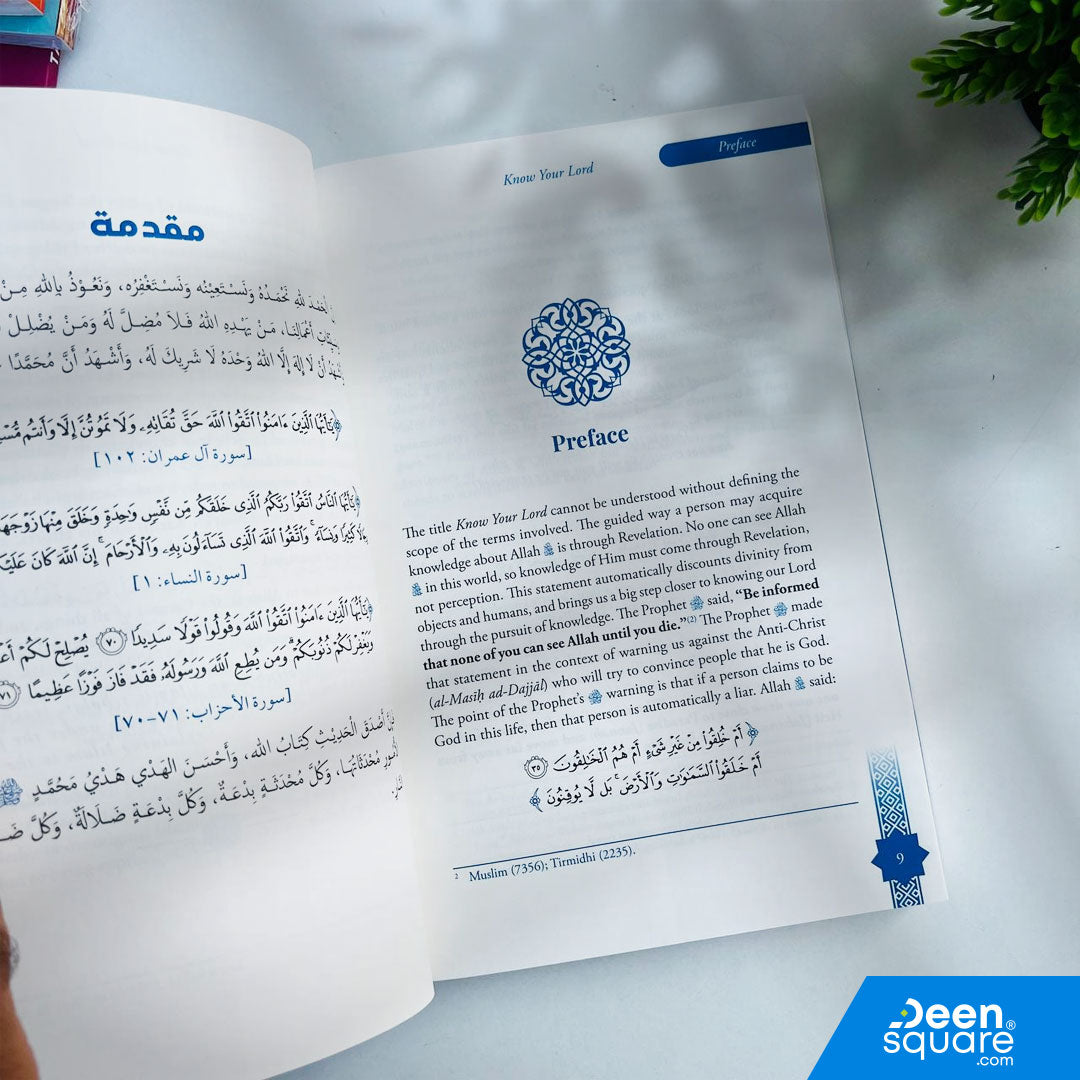 مقدمة
لله نَحْمَدُهُ وَنَسْتَعِيْنُه وَنَسْتَغْفِرُه، وَنَعُوْذُ بِاللهِ مِنْ
أَعْمَالِنَا، مَنْ يَهْدِهِ اللهُ فَلاَ مُضِلَّ لَهُ وَمَنْ يُضْلِلْ
أَنْ لَا إِلهَ إِلَّا اللهُ وَحْدَهُ لَا شَرِيكَ لَهُ، وَأَشْهَدُ أَنَّ مُحَمَّدًا
﴿يَٰٓأَيُّهَا ٱلَّذِينَ ءَامَنُوا۟ ٱتَّقُوا۟ ٱللَّهَ حَقَّ تُقَاتِهِۦ وَلَا تَمُوتُنَّ إِلَّا وَأَنتُم
[سورة آل عمران: ١٠٢]
﴿يَٰٓأَيُّهَا ٱلنَّاسُ ٱتَّقُوا۟ رَبَّكُمُ ٱلَّذِى خَلَقَكُم مِّن نَّفْسٍ وَٰحِدَةٍ وَخَلَقَ مِنْهَا زَوْجَهَا
كَثِيرًا وَنِسَآءً ۚ وَٱتَّقُوا۟ ٱللَّهَ ٱلَّذِى تَسَآءَلُونَ بِهِۦ وَٱلْأَرْحَامَ ۚ إِنَّ ٱللَّهَ كَانَ
[سورة النساء: ١]
﴿يَٰٓأَيُّهَا ٱلَّذِينَ ءَامَنُوا۟ ٱتَّقُوا۟ ٱللَّهَ وَقُولُوا۟ قَوْلًا سَدِيدًا ٧٠ يُصْلِحْ لَكُمْ
وَيَغْفِرْ لَكُمْ ذُنُوبَكُمْ ۗ وَمَن يُطِعِ ٱللَّهَ وَرَسُولَهُۥ فَقَدْ فَازَ فَوْزًا عَظِيمًا ٧١
[سورة الأحزاب: ٧١-٧٠]
أَصْدَقَ الْحَدِيْثِ كِتَابُ الله، وَأَحْسَنَ الْهَدْيِ هَدْيُ مُحَمَّدٍ ﷺ
مُحْدَثَاتُهَا، وَكُلَّ مُحْدَثَةٍ بِدْعَةٌ، وَكُلَّ بِدْعَةٍ ضَلَالَةٌ، وَكُلَّ
Know Your Lord
Preface
Preface
The title Know Your Lord cannot be understood without defining the
scope of the terms involved. The guided way a person may acquire
knowledge about Allah ﷻ is through Revelation. No one can see Allah
ﷻ in this world, so knowledge of Him must come through Revelation,
not perception. This statement automatically discounts divinity from
objects and humans, and brings us a big step closer to knowing our Lord
through the pursuit of knowledge. The Prophet ﷺ said, “Be informed
that none of you can see Allah until you die.”(2) The Prophet ﷺ made
that statement in the context of warning us against the Anti-Christ
(al-Masīḥ ad-Dajjāl) who will try to convince people that he is God.
The point of the Prophet’s ﷺ warning is that if a person claims to be
God in this life, then that person is automatically a liar. Allah ﷻ said:
﴿أَمْ خُلِقُوا۟ مِنْ غَيْرِ شَىْءٍ أَمْ هُمُ ٱلْخَٰلِقُونَ ٣٥
أَمْ خَلَقُوا۟ ٱلسَّمَٰوَٰتِ وَٱلْأَرْضَ ۚ بَل لَّا يُوقِنُونَ﴾
2 Muslim (7356); Tirmidhi (2235).
9
Deen
square®
.com